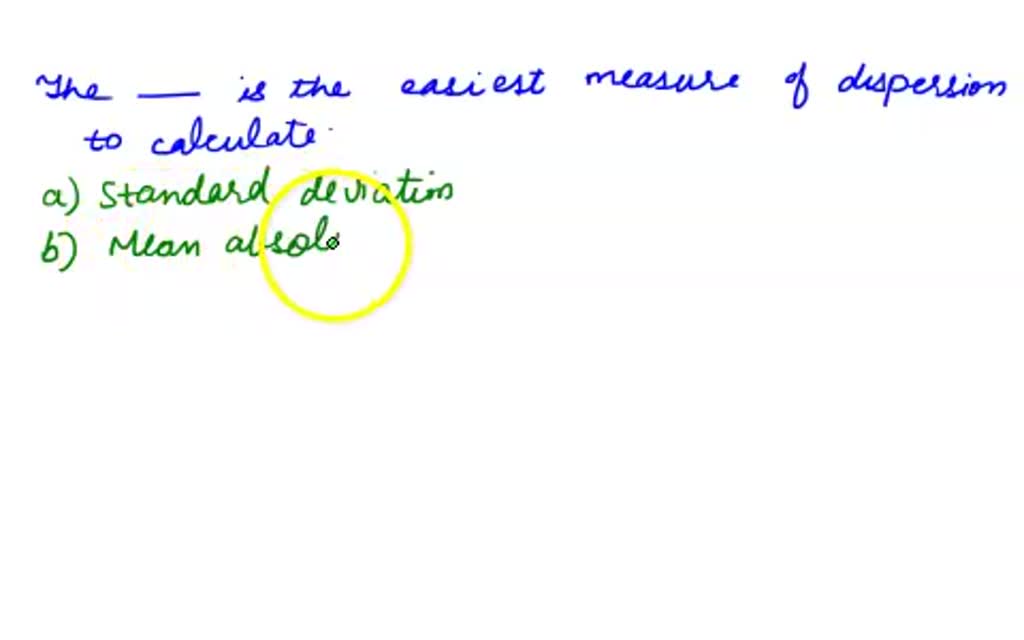 The ___ is the easiest measure of dispersion
to calculate.
a) Standard deviation
b) Mean absol